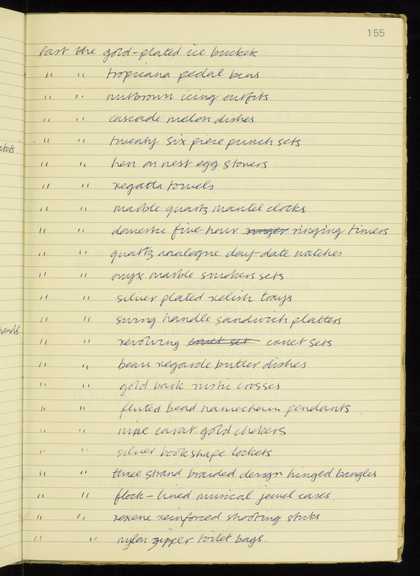 155
Past the gold-plated ice bucket
" " tropicana pedal bins
" " nutbrown icing outfits
" " cascade melon dishes
" " twenty six piece punch sets
" " hen on nest egg storers
" " regatta towels
" " marble quartz mantel clocks
" " domestic five hour ringer ringing timers
" " quartz analogue day-date watches
" " onyx marble smokers sets
" " silver plated relish trays
" " swing handle sandwich platters
" " revolving cruet set cruet sets
" " beau regarde butter dishes
" " gold back rustic crosses
" " fluted bead pendants
" " nine carat gold chokers
" " silver bookshape lockets
" " three strand braided design hinged bangles
" " flock-lined musical jewel cases
" " rexene reinforced shooting sticks
" " nylon zipper toilet bags